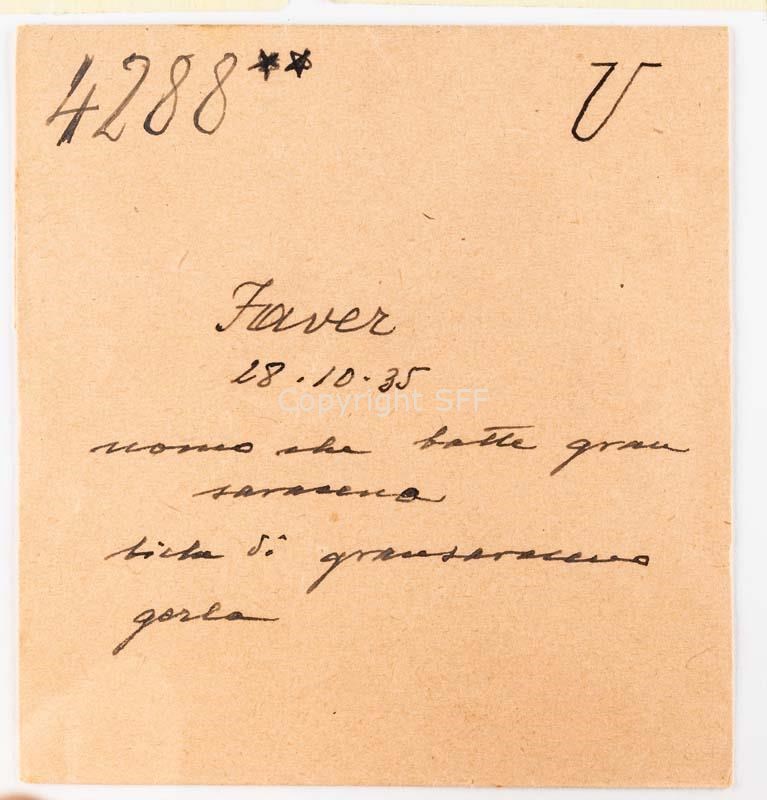 4288** U
Faver
28.10.35
Copyright SFF
uomo che batte gran
saraceno
bica di gransaraceno
gerla